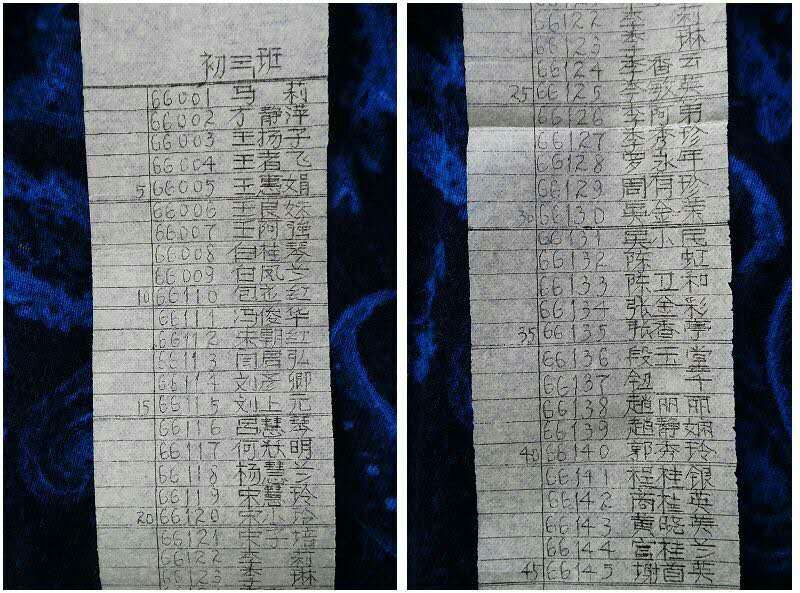 初三班
66001 马 莉
66002 方静萍
66003 王扬子
66004 王者飞
5 66005 王惠娟
66006 王良妹
66007 王阿强
66008 白桂琴
66009 白凤兰
10 66110 包 红
66111 冯俊华
66112 宋朝红
66113 闫居弘
66114 刘彦卿
15 66115 刘上元
66116 吕慧琴
66117 何秋明
66118 杨慧兰
66119 宋慧玲
20 66120 宋小玲
66121 宋宇培
66122 李 莉
66123 李 琳
66122 李 莉
66123 李 琳
66124 李香云
25 66125 李敏英
66126 李阿弟
66127 李秀珍
66128 罗永年
66129 周有珍
30 66130 吴金荣
66131 吴小民
66132 陈 虹
66133 陈卫和
66134 张金彩
35 66135 张香亭
66136 段玉堂
66137 千
66138 赵丽丽
66139 赵静娴
40 66140 郭秀玲
66141 程桂银
66142 商桂英
66143 黄晓英
66144 富桂兰
45 66145 谢百英